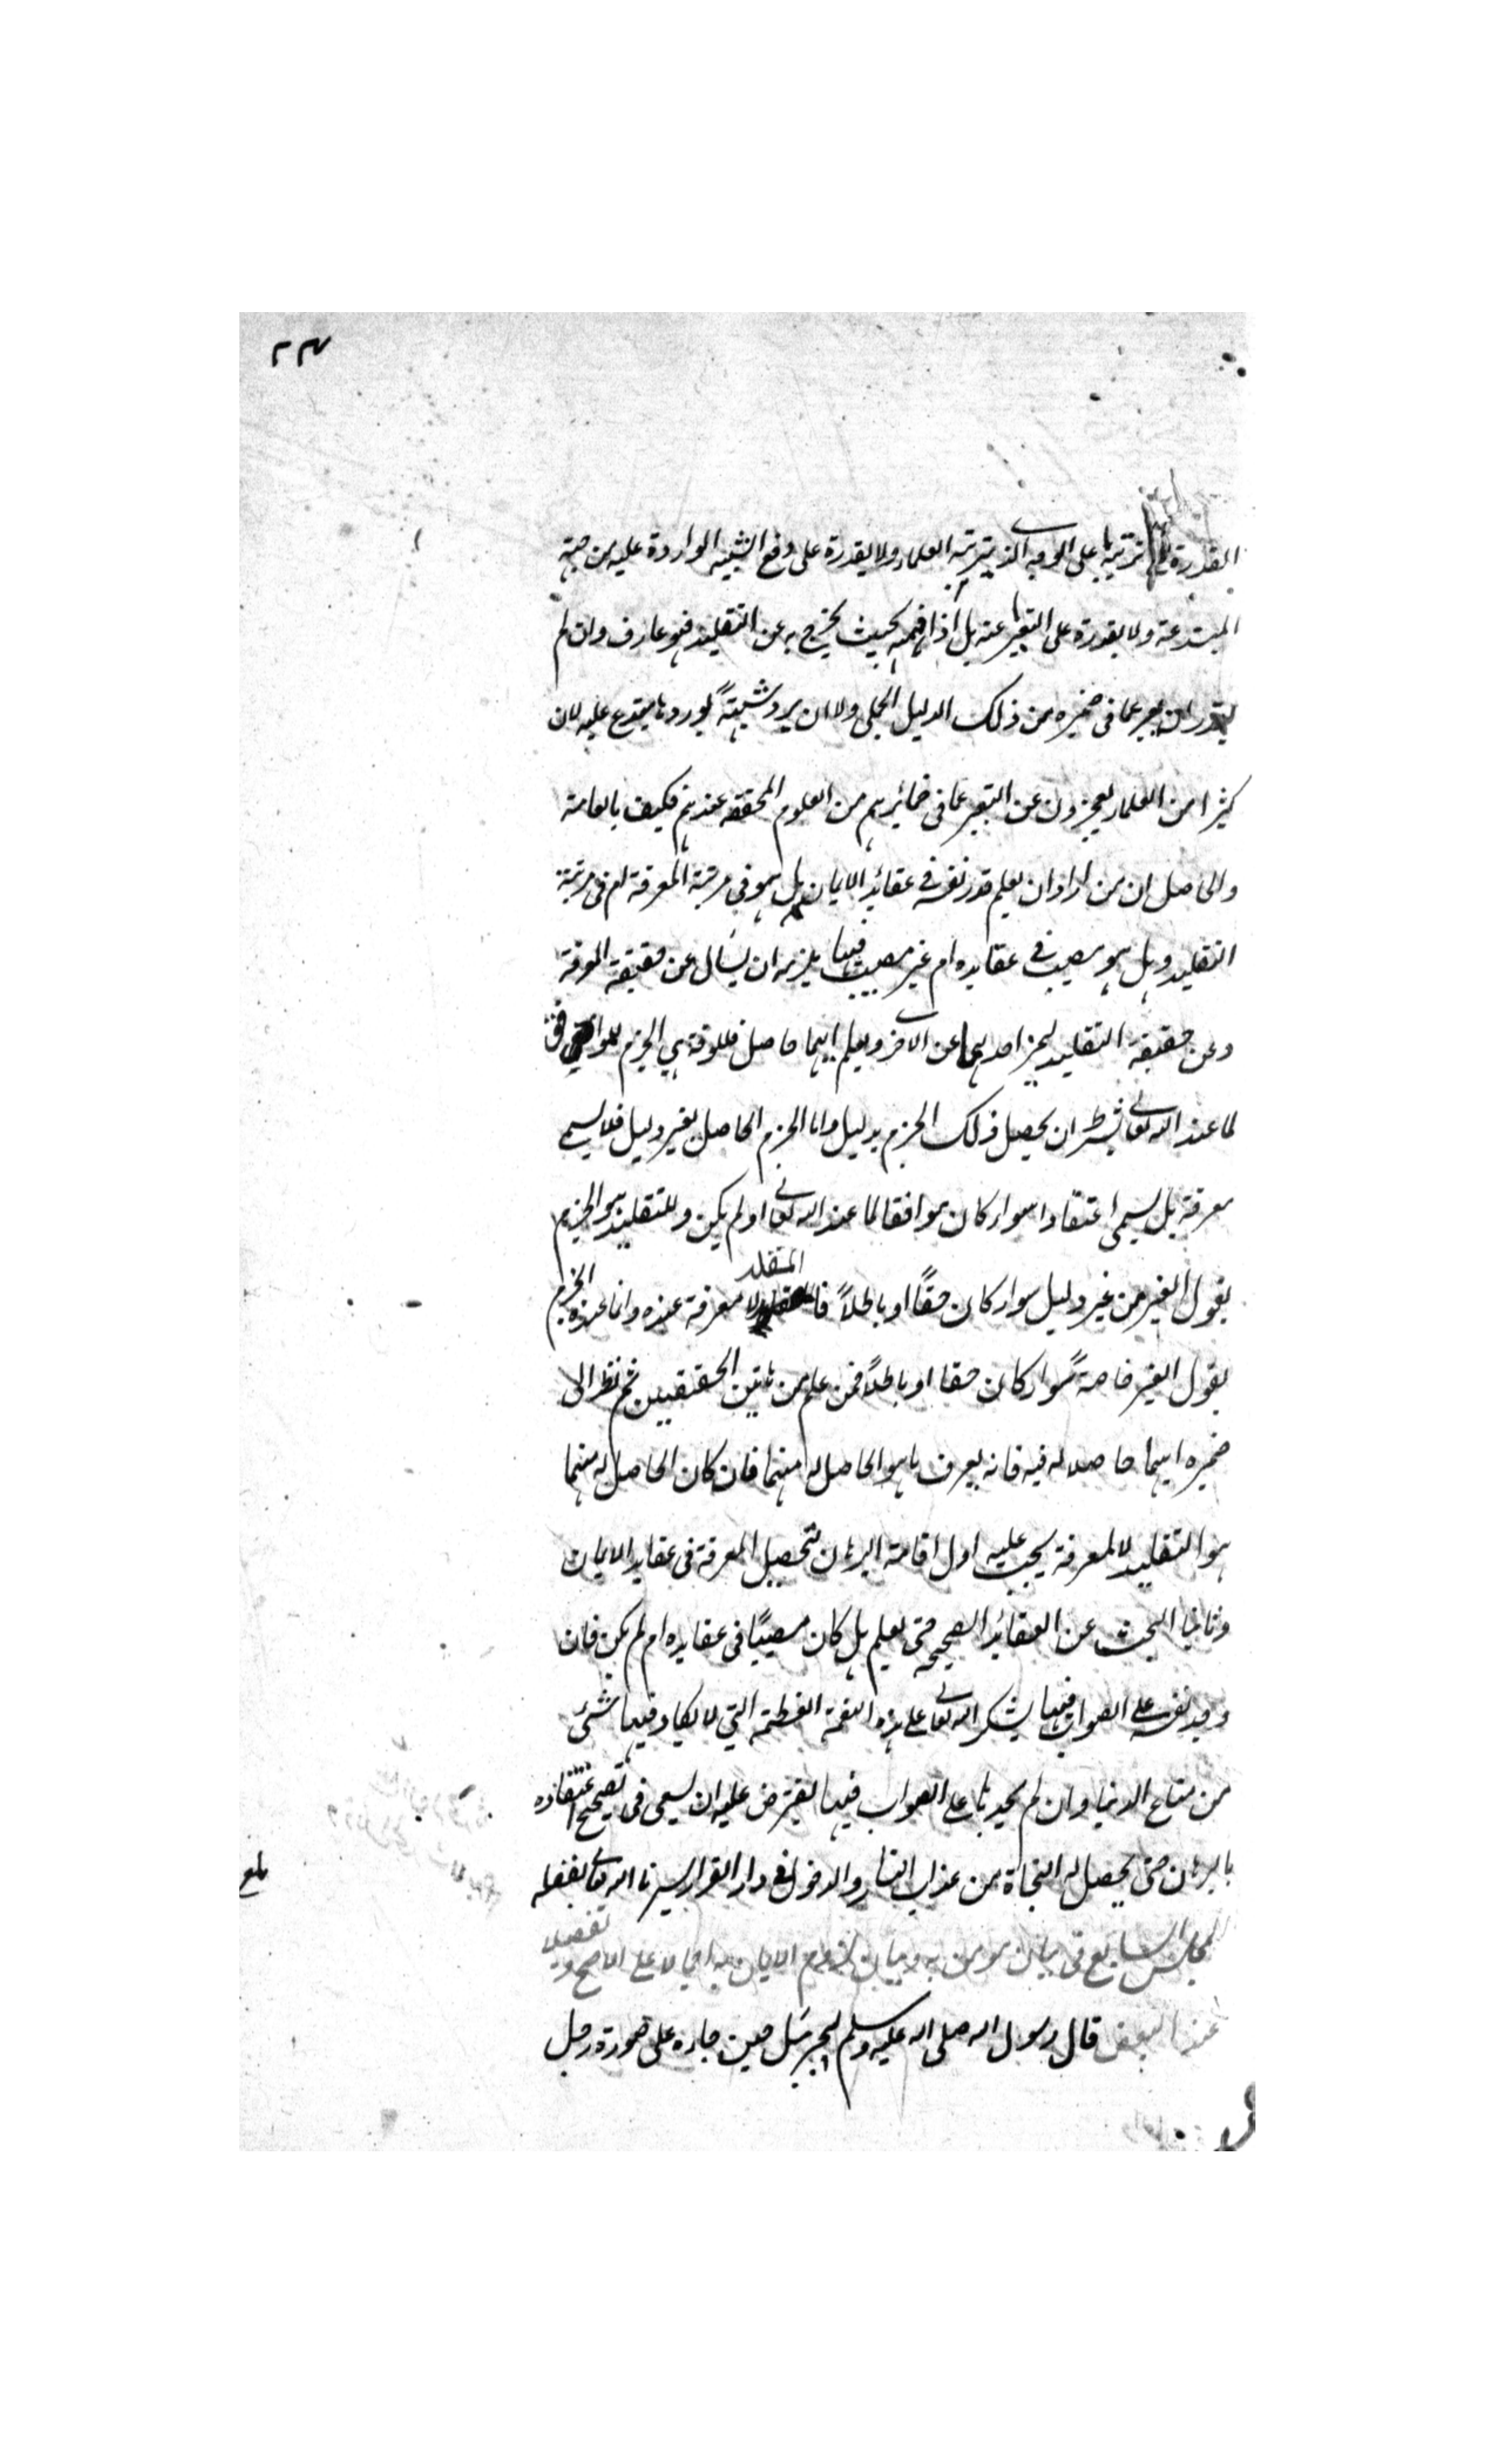 ٢٣
القدرة على ترتيبها على الوجه الذي يترتبه العلماء ولا يقدرة على دفع الشبهه الواردة عليه من جهة
المبتدعة ولا بقدرة على التعبير عنه بل اذا فهمه بحيث يخرج به عن التقليد فهو عارف وان لم
يقدر ان يعبر عما في ضميره من ذلك الدليل الجملي ولا ان يرد شبهةً يوردها مبتدع عليه لان
كثيرا من العلماء يعجزون عن التعبير عما في ضمائرهم من العلوم المحققة عندهم فكيف بالعامة
والحاصل ان من اراد ان يعلم قدر نفسه في عقائد الايمان هل هو في مرتبة المعرفة ام في مرتبة
التقليد وهل هو مصيب في عقايده ام غير مصيب فيها يلزمه ان يسأل عن حقيقة المعرفة
وعن حقيقة التقليد ليميز احدهما عن الآخر ويعلم ايهما حاصل فالمعرفة هي الجزم الموافق
لما عند الله تعالى بشرط ان يحصل ذلك الجزم بدليل واما الجزم الحاصل بغير دليل فلا يسمى
معرفة بل يسمى اعتقادا سواء كان موافقا لما عند الله تعالى او لم يكن والتقليد هو الجزم
بقول الغير من غير دليل سواء كان حقًا او باطلاً فالمقلد لا معرفة عنده وانما عنده الجزم
بقول الغير خاصةً سواء كان حقا او باطلاً فمن علم من هاتين الحقيقتين ثم نظر الى
ضميره ايهما حاصلا له فيه فانه يعرف ما هو الحاصل له منهما فان كان الحاصل له منهما
هو التقليد لا المعرفة يجب عليه اول اقامة البرهان لتحصيل المعرفة في عقايد الايمان
وثانيا البحث عن العقائد الصحيحة حتى يعلم هل كان مصيبًا في عقايده ام لم يكن فان
وجد نفسه على الصواب فيها يشكر الله تعالى على هذه النعمة العظيمة التي لا يكاد فيها شئ
من متاع الدنيا وان لم يجدها على الصواب فيها يفترض عليه ان يسعى في تصحيح اعتقاده
بالبرهان حتى يحصل له النجاة من عذاب النار والدخول في دار القرار يسرنا الله تعالى بفضله
المجلس السابع في بيان مومن به وبيان لزوم الايمان به اجمالا على الاصح وتفصيلا
عند البعض قال رسول الله صلى الله عليه وسلم لجبرئيل حين جاءه على صورة رجل